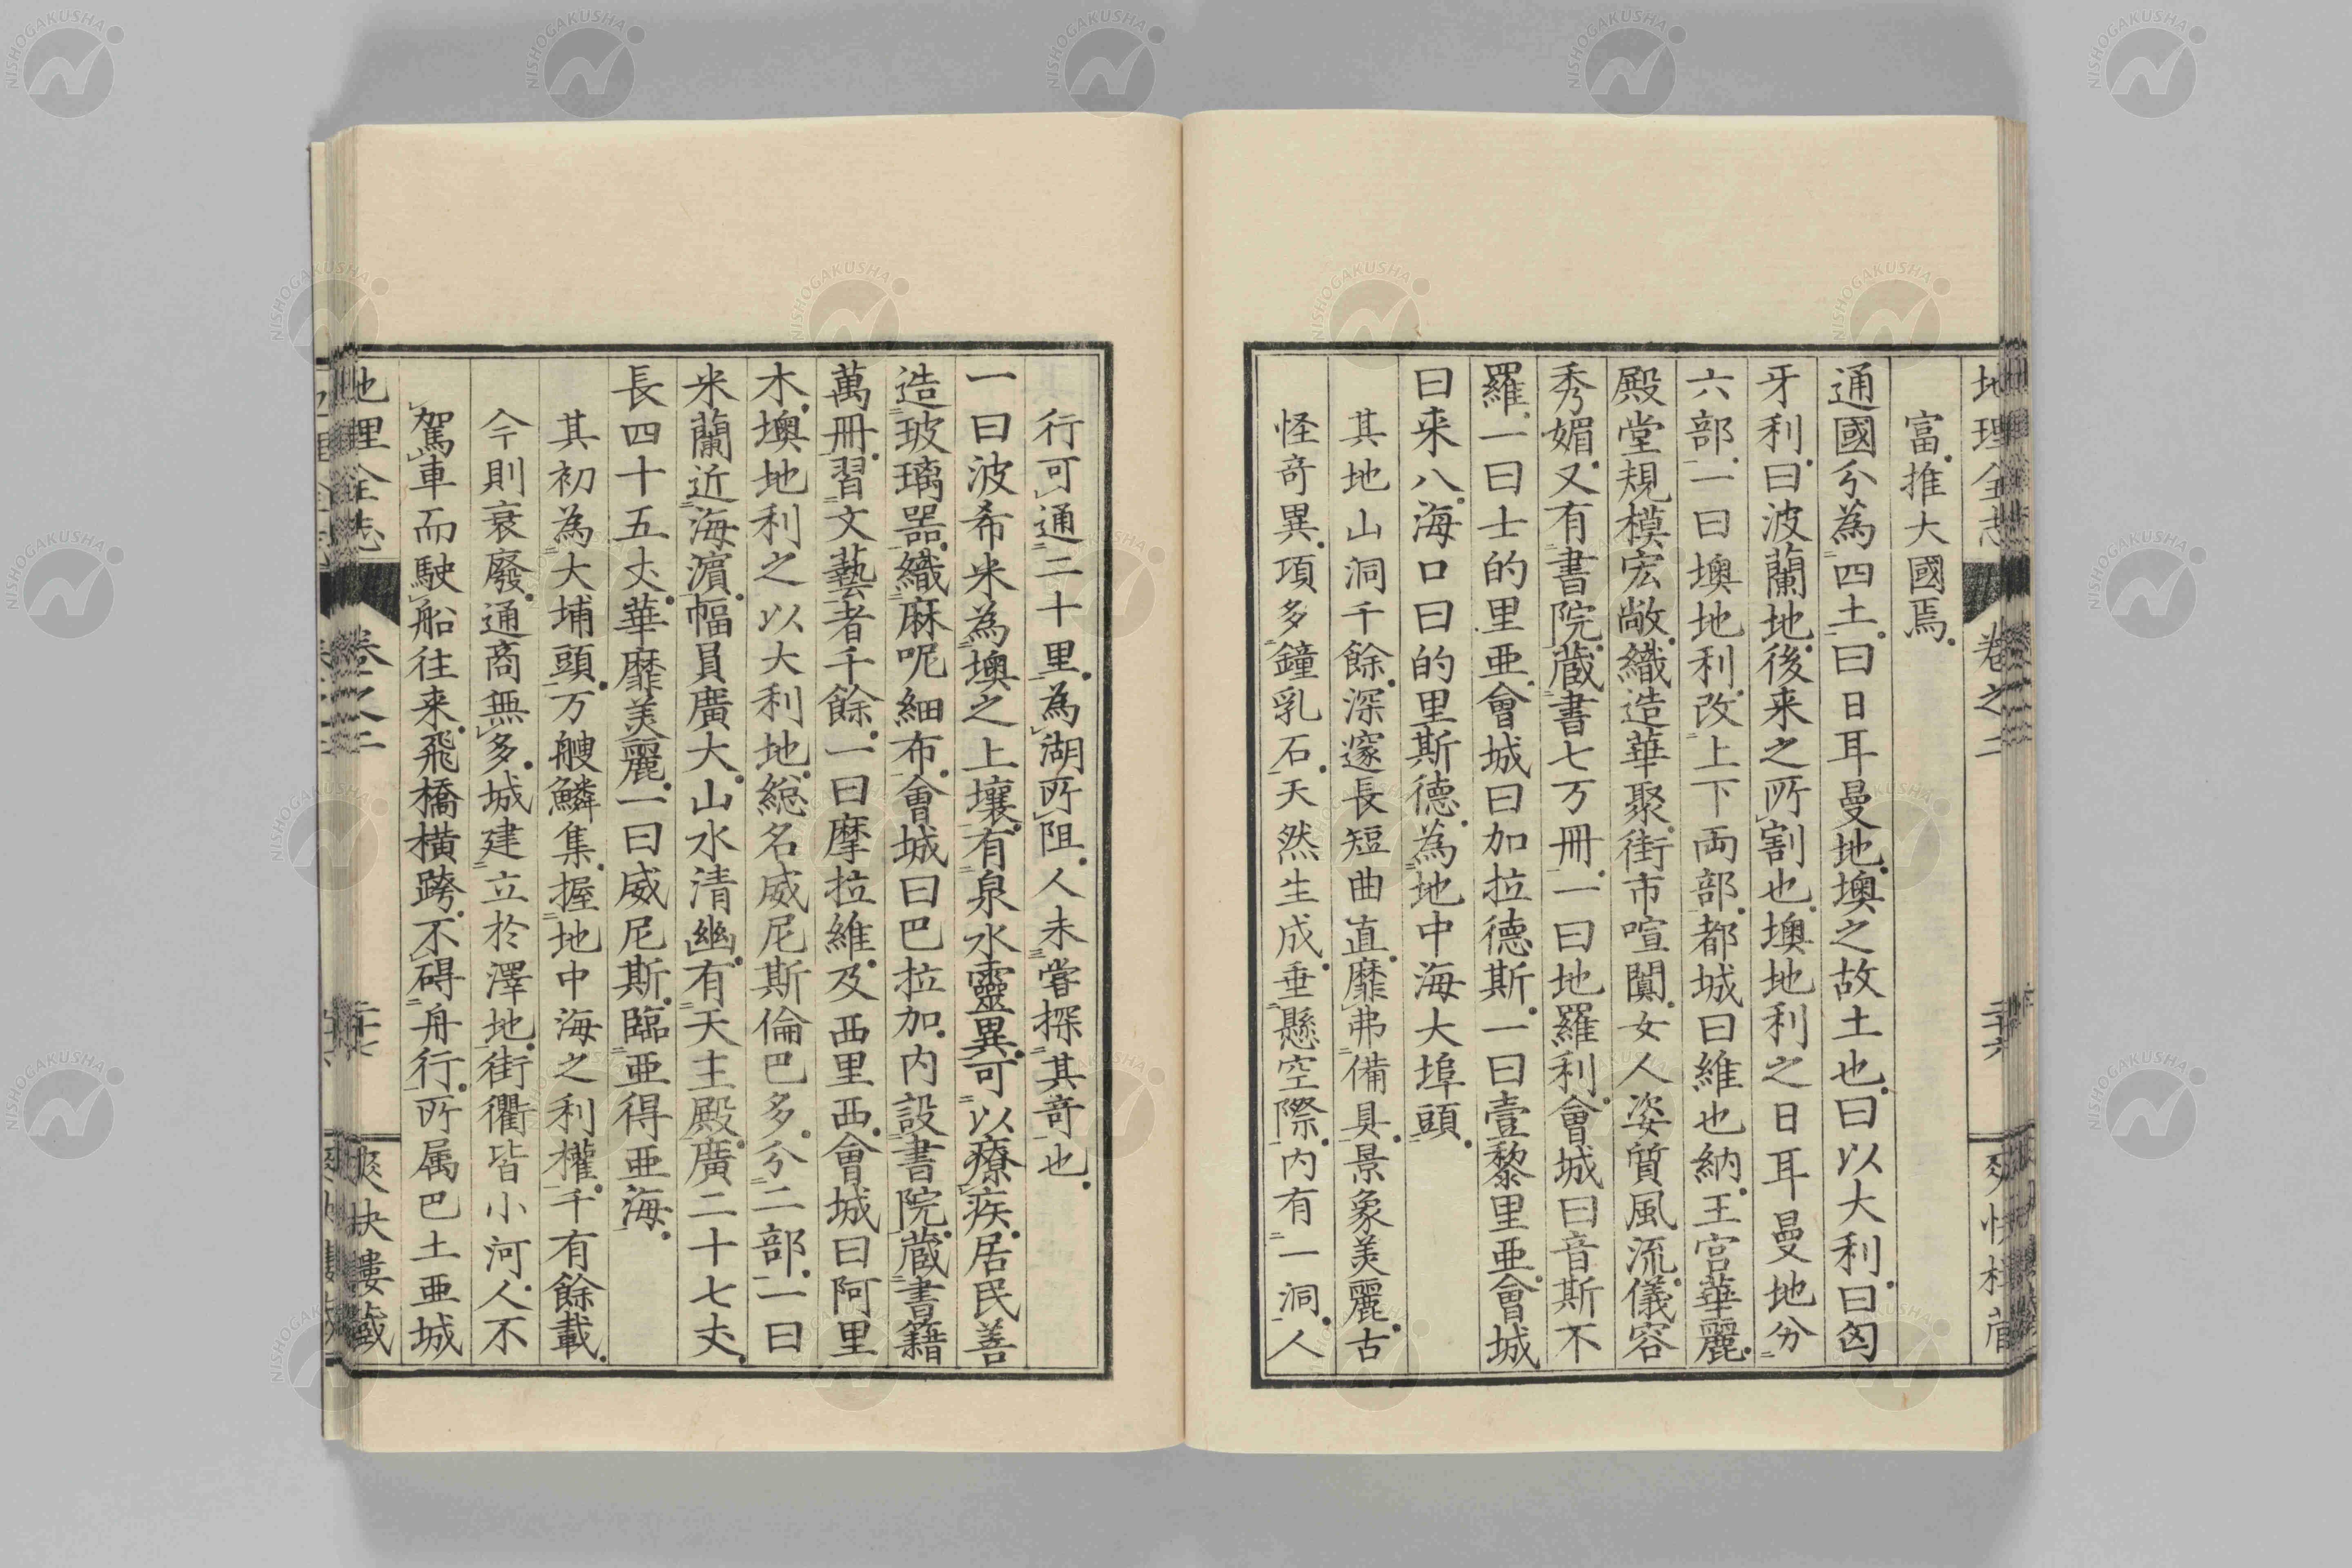 地理全志 卷之二 二十六
富。推大國焉。
通國分為四土。曰日耳曼地。墺之故土也。曰以大利。曰匈
牙利。曰波蘭地。後来之所割也。墺地利之日耳曼地分
六部。一曰墺地利。改上下両部。都城曰維也納。王宮華麗。
殿堂規模宏敞。織造華聚。街市喧闐。女人姿質風流。儀容
秀媚。又有書院。蔵書七万冊。一曰地羅利。會城曰音斯不
羅。一曰士的里亜。會城曰加拉德斯。一曰壹黎里亜。會城
曰来八。海口曰的里斯德。為地中海大埠頭。
其地山洞千餘。深邃長短曲直。靡弗備具。景象美麗。古
怪奇異。項多鐘乳石。天然生成。垂懸空際。内有一洞。人
行可通二十里。為湖所阻。人未嘗探其奇也。
一曰波希米。為墺之上壤。有泉水靈異。可以療疾。居民善
造玻璃噐。織麻呢細布。會城曰巴拉加。内設書院。蔵書籍
萬冊。習文藝者千餘。一曰摩拉維。及西里西。會城曰阿里
木。墺地利之以大利地。総名威尼斯倫巴多。分二部。一曰
米蘭。近海濵。幅員廣大。山水清幽。有天主殿。廣二十七丈。
長四十五丈。華靡美麗。一曰威尼斯。臨亜得亜海。
其初為大埔頭。万艘鱗集。握地中海之利權。千有餘載。
今則衰廢。通商無多。城建立於澤地。街衢皆小河。人不
駕車而駛船往来。飛橋横跨。不碍舟行。所属巴土亜城
地理全志 卷之二 二十七 爽快樓蔵